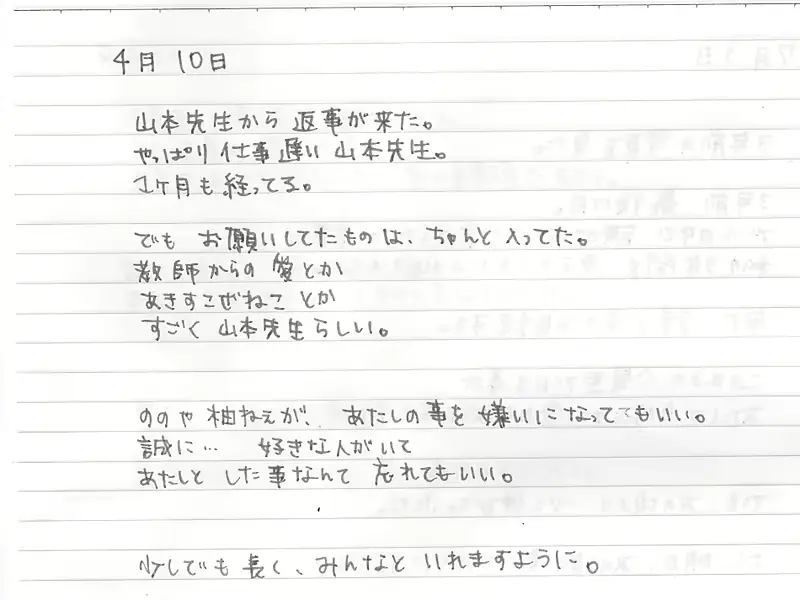 4月10日
山本先生から返事が来た。
やっぱり仕事遅い山本先生。
1ヶ月も経ってる。
でも お願いしてたものは、ちゃんと入ってた。
教師からの愛とか
あきすこぜねことか
すごく山本先生らしい。
ののや柚ねぇが、あたしの事を嫌いになっててもいい。
誠に… 好きな人がいて
あたしと した事なんて 忘れてもいい。
少しでも長く、みんなと いれますように。